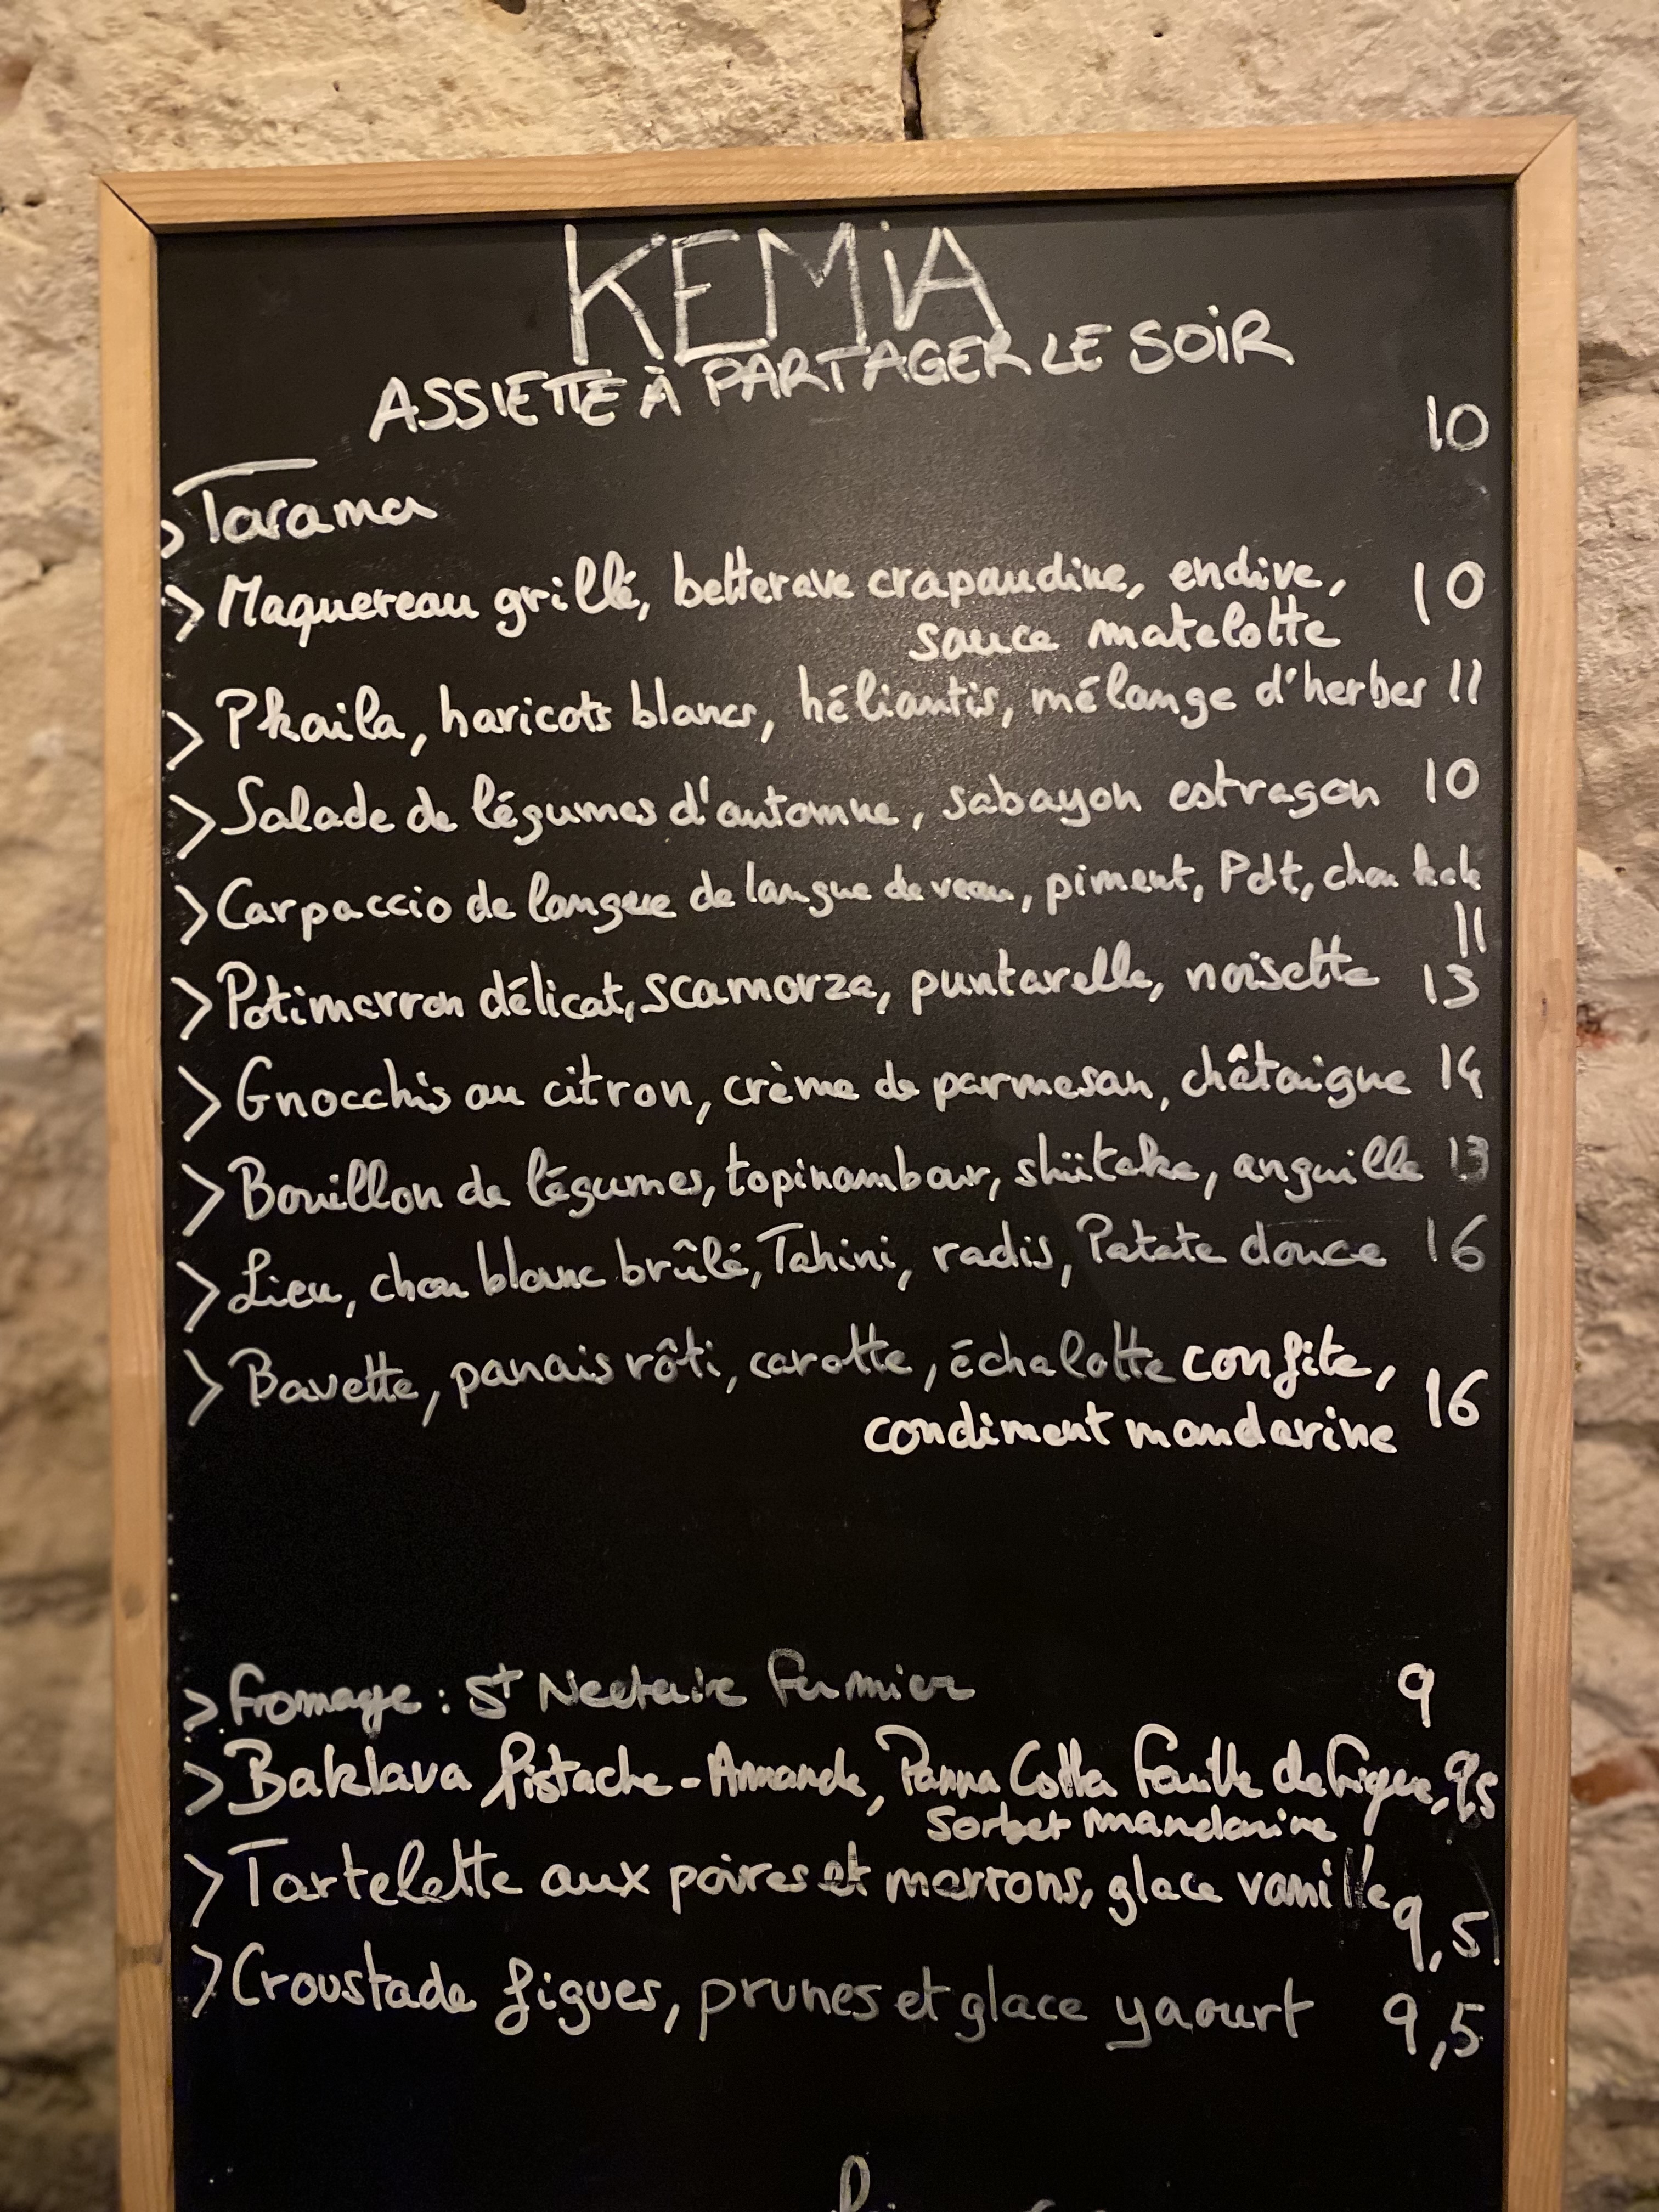 KEMiA
ASSIETTE À PARTAGER LE SOiR
> Tarama 10
> Maquereau grillé, betterave crapaudine, endive, 10
sauce matelotte
> Pkaila, haricots blancs, héliantis, mélange d'herbes 11
> Salade de légumes d'automne, sabayon estragon 10
> Carpaccio de langue de langue de veau, piment, Pdt, chou kale
11
> Potimarron délicat, scamorza, puntarelle, noisette 13
> Gnocchis au citron, crème de parmesan, châtaigne 14
> Bouillon de légumes, topinambour, shiitake, anguille 13
> Lieu, chou blanc brûlé, Tahini, radis, Patate douce 16
> Bavette, panais rôti, carotte, échalotte confite, 16
condiment mandarine
> fromage : St Nectaire Fermier 9
> Baklava Pistache - Amande, Panna Cotta Feuille de Figue, 9,5
Sorbet mandarine
> Tartelette aux poires et marrons, glace vanille
9,5
> Croustade figues, prunes et glace yaourt 9,5